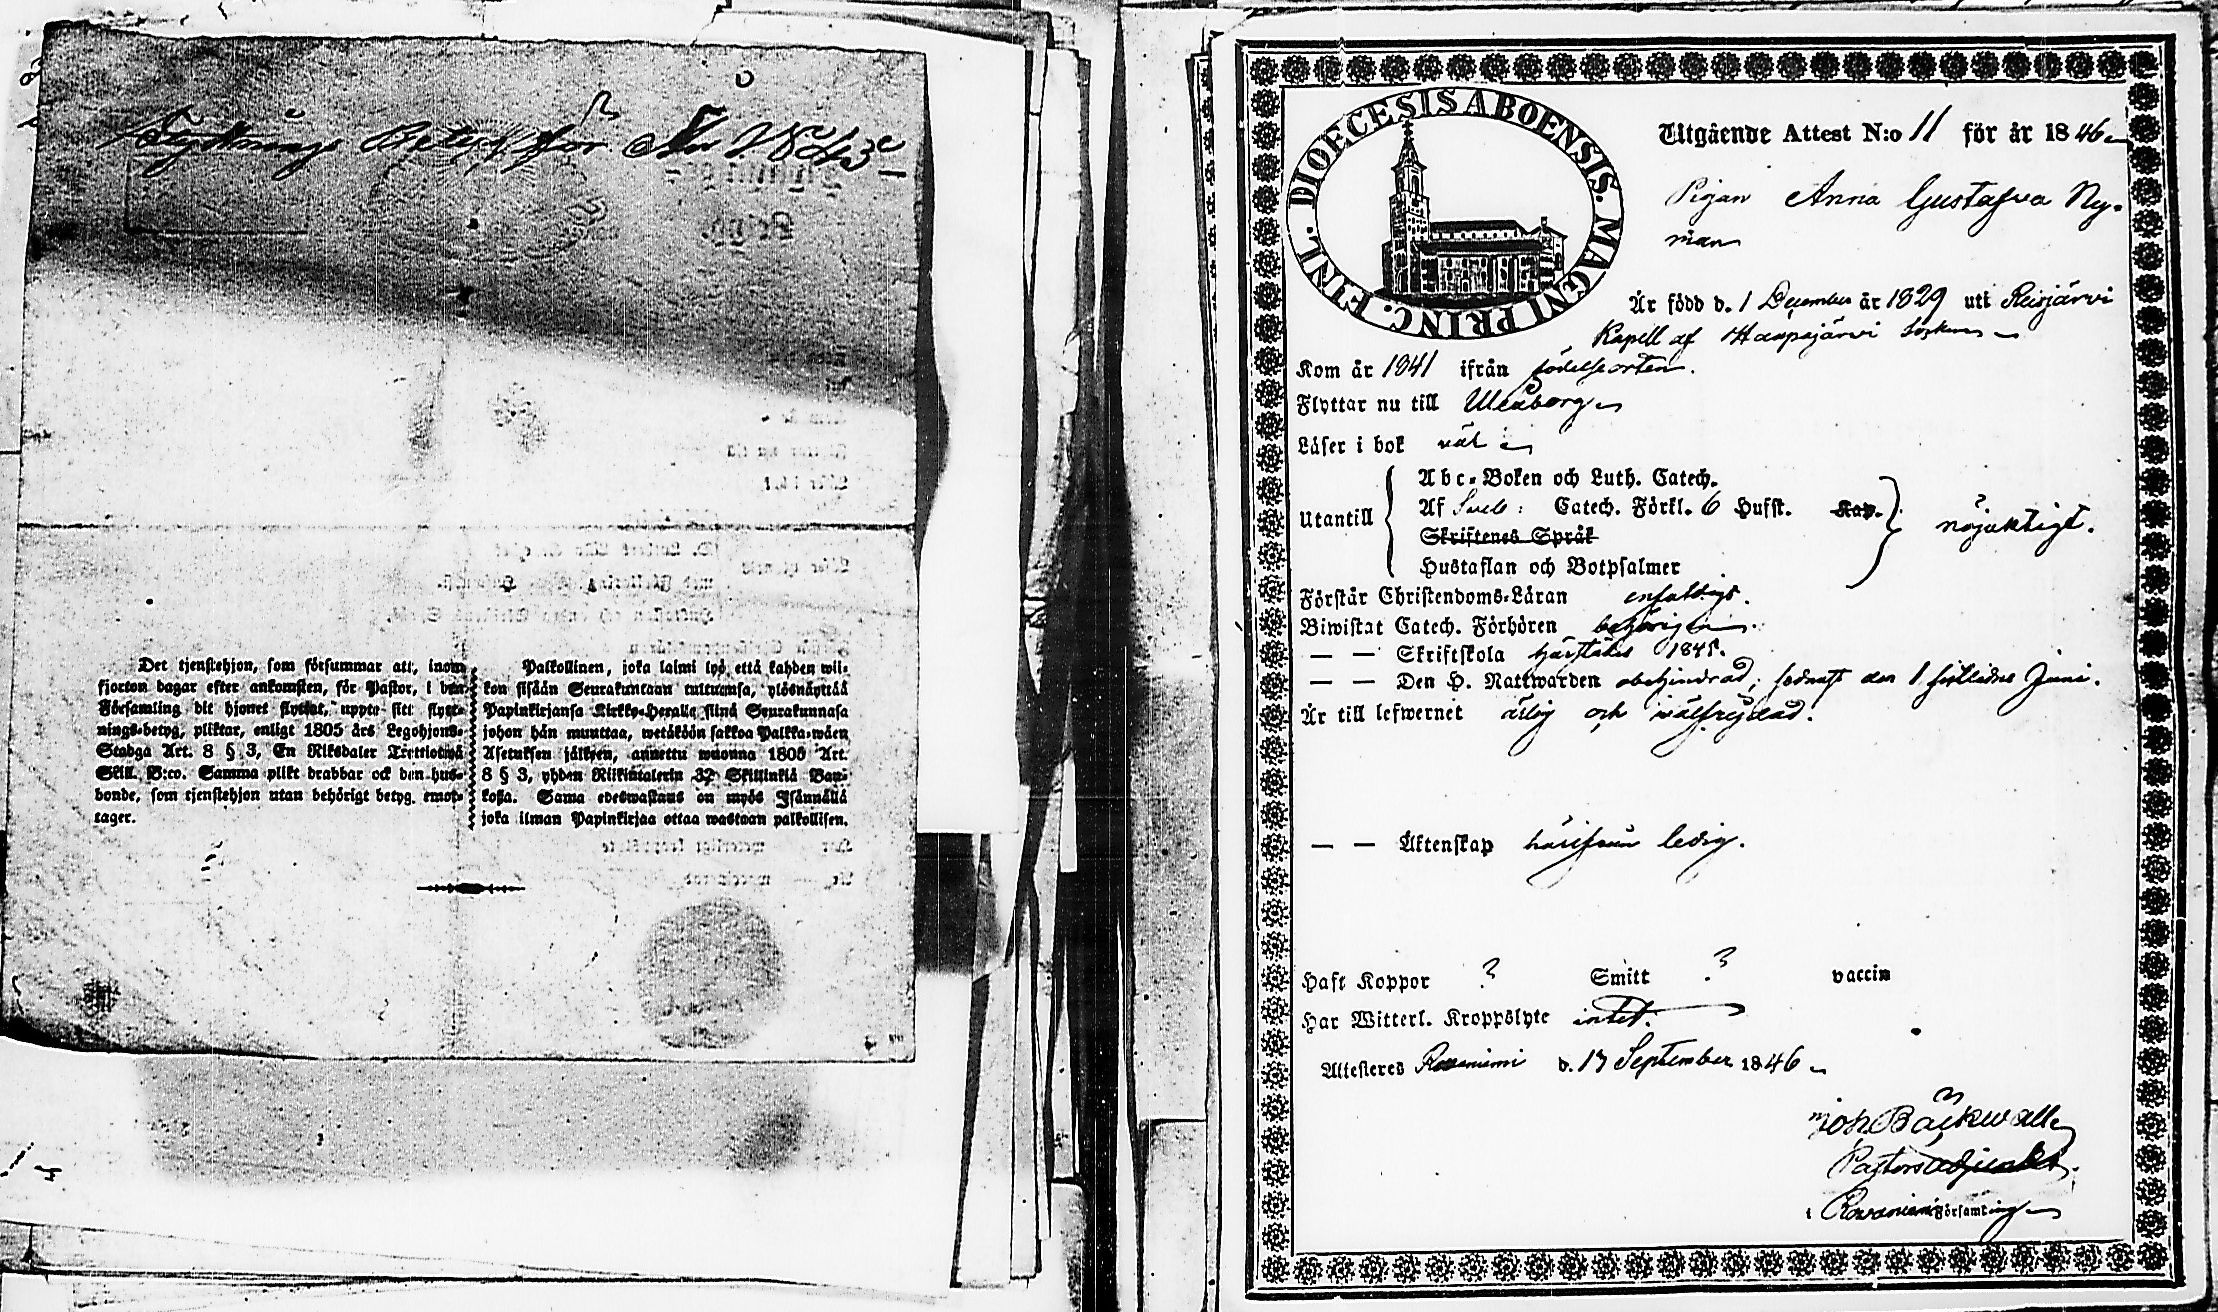 Flyttnings Betyg för År 1843
Det tjenstehjon, som försummar att, inom
fjorton dagar efter ankomsten, för Pastor, i den
Församling dit hjonet flyttat, uppte sitt flytt-
nings-betyg, pliktar, enligt 1805 års Legohjons-
Stadga Art. 8 § 3, En Riksdaler Trettiotwå
Skill. B:co. Samma plikt drabbar ock den hus-
bonde, som tjenstehjon utan behörigt betyg emot-
tager.
Palkollinen, joka laimi lyö, että kahden wii-
kon sisään Seurakuntaan tultuansa, ylösnäyttää
Papinkirjansa Kirkko-Herralle siinä Seurakunnasa
johon hän muuttaa, wetäköön sakkoa Palkka-wäen
Asetuksen jälkeen, annettu wuonna 1805 Art.
8 § 3, yhden Riikintalerin 32 Skillinkiä Ban-
kossa. Sama edeswastaus on myös Isännällä
joka ilman Papinkirjaa ottaa wastaan palkollisen.
DIOECESIS ABOENSIS. MAGNI PRINC. FINL.
Utgående Attest N:o 11 för år 1846
Pigan Anna Gustafva Ny-
man
Är född d. 1 December år 1829 uti Reisjärvi
Kapell af Haapajärvi Socken
Kom år 1841 ifrån födelseorten.
Flyttar nu till Uleåborg
Läser i bok väl
Utantill
Abc-Boken och Luth. Catech.
Af Sveb: Catech. Förkl. 6 Hufst. Kap.
Skriftenes Språk
Hustaflan och Botpsalmer
nöjaktigt.
Förstår Christendoms-Läran enfaldigt.
Biwistat Catech. Förhören behörigen.
— — Skriftskola härstädes 1845.
— — Den H. Nattwarden obehindrad, sednast den 1 sistledne Juni.
Är till lefwernet ärlig och wälfrejdad.
— — Äktenskap härifrån ledig.
Haft Koppor ? Smitt ? vaccin
Har Witterl. Kroppslyte intet.
Attesteras Rovaniemi d. 17 September 1846
Joh Bäckwall
Pastorsadjunkt.
i Rovaniemi Församling